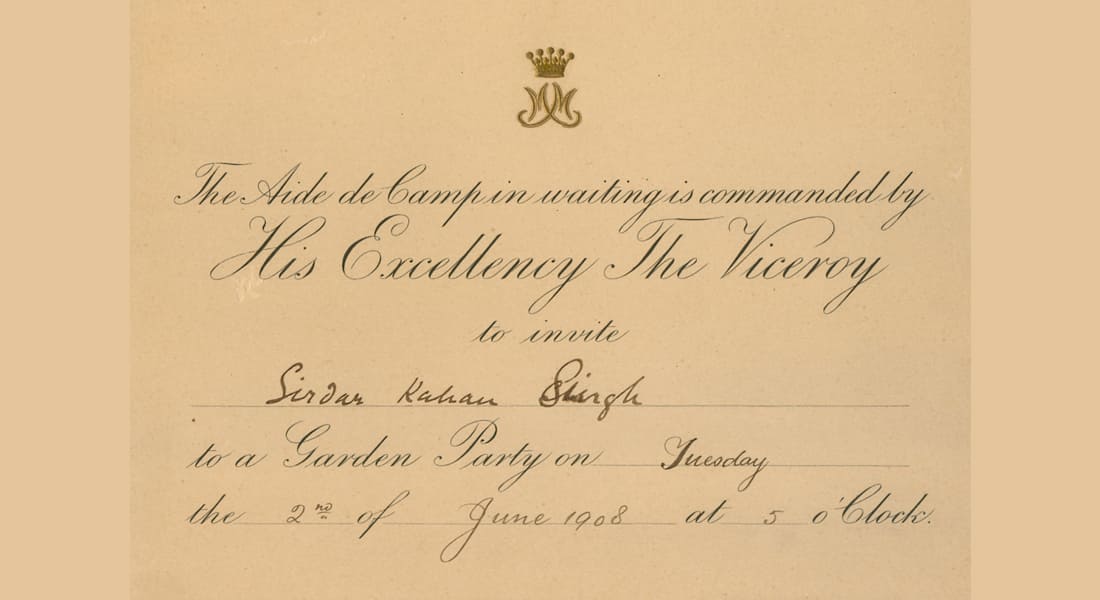 The Aide de Camp in waiting is commanded by
His Excellency The Viceroy
to invite
Sirdar Kahan Singh
to a Garden Party on Tuesday
the 2nd of June 1908 at 5 o'Clock.